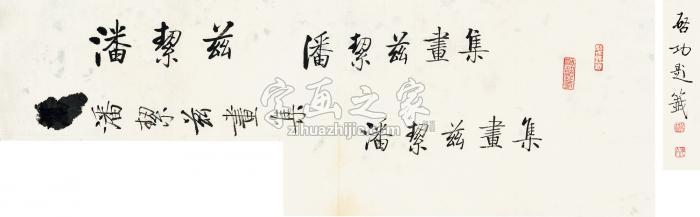 潘絜兹
潘絜兹畫集
潘絜兹畫集
潘絜兹畫集
啓功題籤
字画之家
zihuazhijia.com